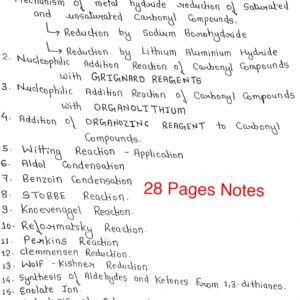 Mechanism of metal hydride reduction of Saturated
and unsaturated Carbonyl Compounds.
↳ Reduction by Sodium Borohydride
↳ Reduction by Lithium Aluminium Hydride
2. Nucleophilic Addition Reaction of Carbonyl Compounds
with GRIGNARD REAGENTS
3. Nucleophilic Addition Reaction of Carbonyl Compounds
with ORGANOLITHIUM
4. Addition of ORGANOZINC REAGENT to Carbonyl
Compounds.
5. Witting Reaction - Application
6. Aldol Condensation
7. Benzoin Condensation
28 Pages Notes
8. STOBBE Reaction.
9. Knoevenagel Reaction.
10. Reformatsky Reaction.
11. Perkins Reaction
12. Clemmensen Reduction.
13. Wolf - Kishner Reduction.
14. Synthesis of Aldehydes and Ketones from 1,3-dithianes.
15. Enolate Ion.